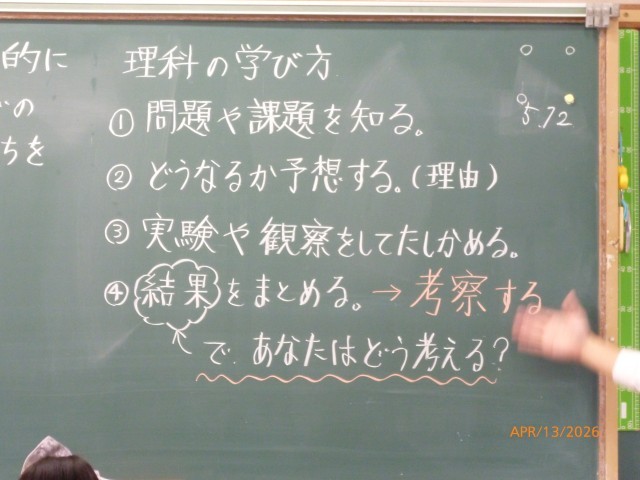 的に
の
ちを
理科の学び方
① 問題や課題を知る。
② どうなるか予想する。(理由)
③ 実験や観察をしてたしかめる。
④ 結果をまとめる。→考察する
で、あなたはどう考える?
5.12
APR/13/2026